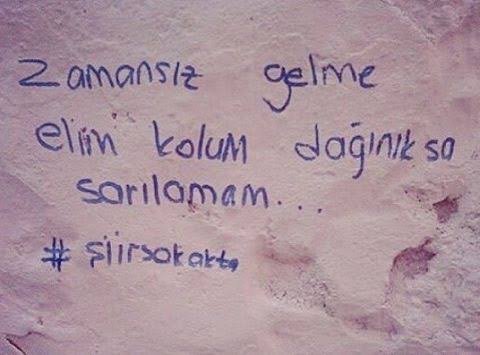 Zamansız gelme
elim kolum dağınıksa
sarılamam...
# şiirsokakta